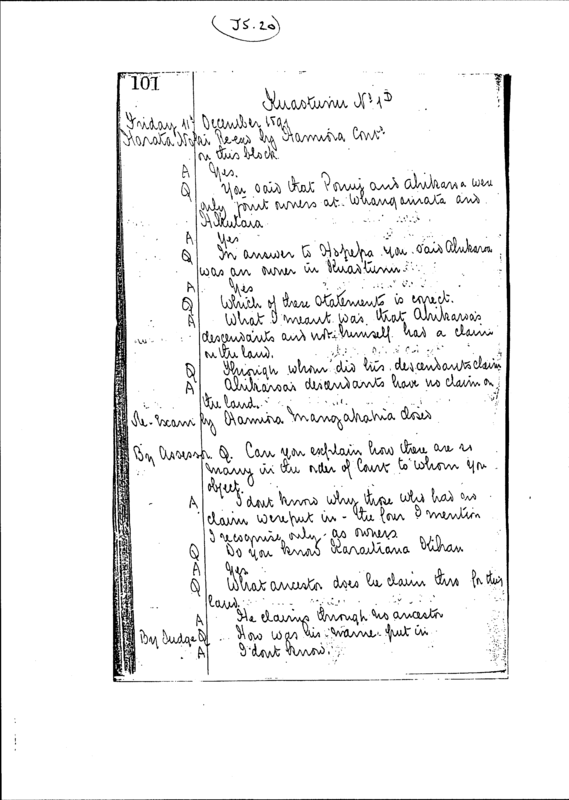 J5.20
101
Kuaotunu No 1D
Friday 11th December 1891
Harata Re-ex'd by Hamiora Cont'd
on this block
A Yes.
Q You said that Ponui and Ahikaroa were
only joint owners at Whangamata and
Hikutaia
A Yes
Q In answer to Hopepa you said Ahikaroa
was an owner in Kuaotunu.
A Yes
Q Which of these statements is correct.
A What I meant was that Ahikaroa's
descendants and not himself had a claim
on the land.
Q Through whom did his descendants claim
A Ahikaroa's descendants have no claim on
the land.
Re-Exam by Hamiora Mangakahia closed
By Assessor Q. Can you explain how there are so
many in the order of Court to whom you
object.
A. I dont know why those who had no
claim were put in - the four I mention
I recognise only as owners
Q Do you know Karaitiana
A Yes
Q What ancestor does he claim thro for this
land
A He claims through no ancestor
By Judge Q. How was his name put in
A I dont know.